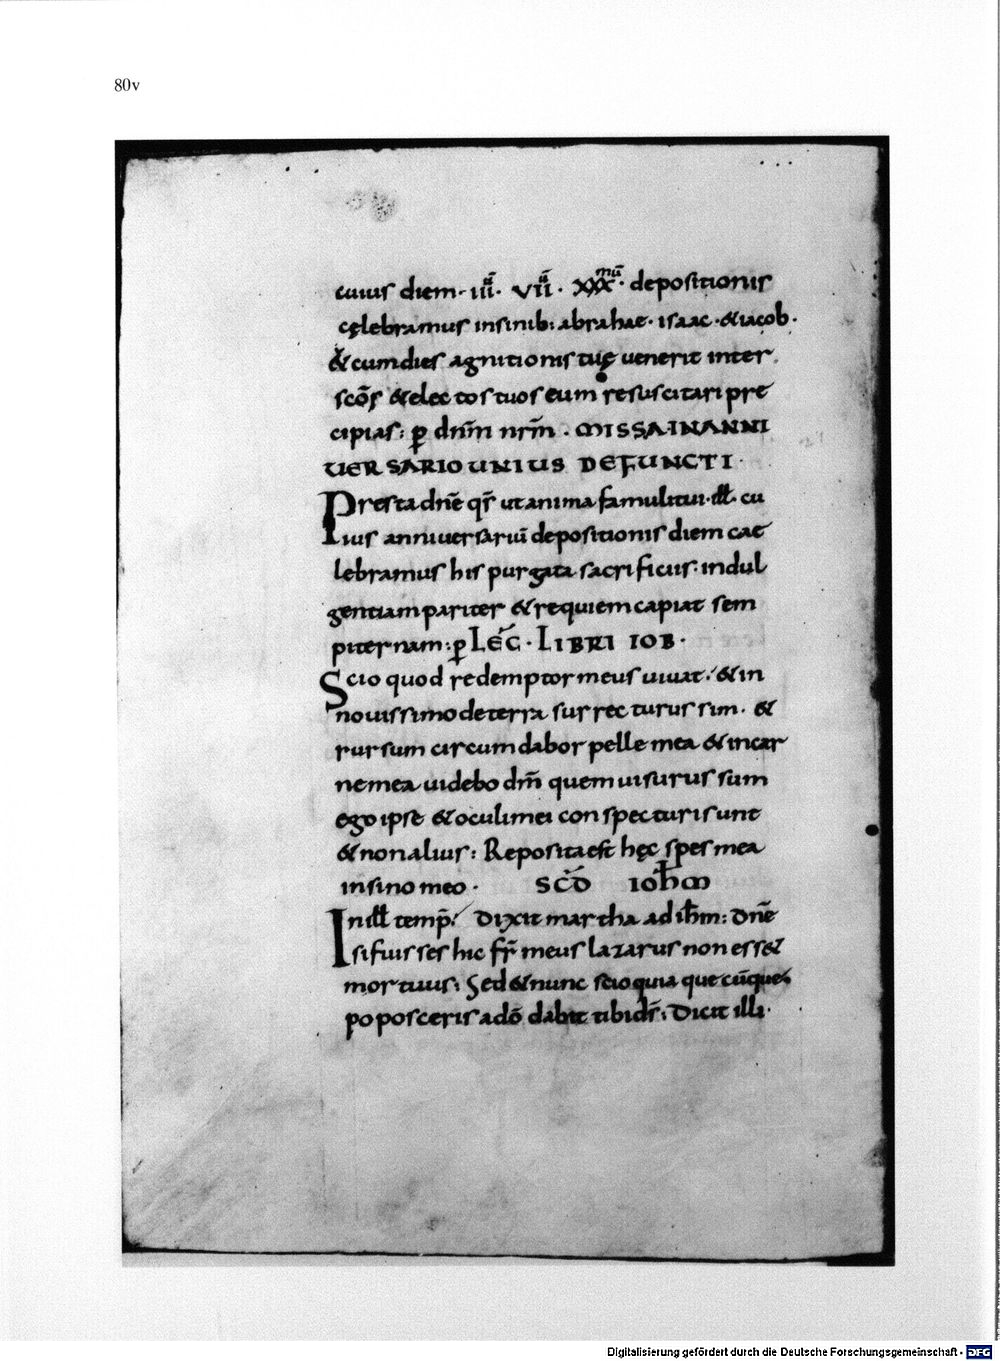 80v
cuius diem· iii̅· vii̅· xxx̅mu̅· depositionis
cęlebramus insinib: abrahae· isaac ·&iacob·
&cumdies agnitionis tuę uenerit inter
sc̅o̅s &electos tuos eum resuscitari pre
cipias: ꝑ dn̅m nr̅m · MISSA·INANNI
UERSARIO UNIUS DEFUNCTI·
Presta dn̅e qs̅ ut anima famuli tui·ill̅· cu
ius anniuersariu̅ depositionis diem cae
lebramus his purgata sacrificiis· indul
gentiam pariter & requiem capiat sem
piternam: ꝑ LEC̅· LIBRI IOB·
Scio quod redemptor meus uiuat: & in
nouissimo de terra surrecturus sim· &
rursum circumdabor pelle mea & incar
ne mea uidebo dm̅ quem uisurus sum
ego ipse & oculi mei conspecturi sunt
& non alius: Reposita est hęc spes mea
in sino meo · SCD̅ IOH̅M
In ill̅ temp̅: Dixit martha ad ih̅m: Dn̅e
si fuisses hic fr̅ meus lazarus non ess&
mortuus: Sed & nunc scio quia que cu̅que
poposceris a do̅ dabit tibi ds̅: Dicit illi·
Digitalisierung gefördert durch die Deutsche Forschungsgemeinschaft - DFG